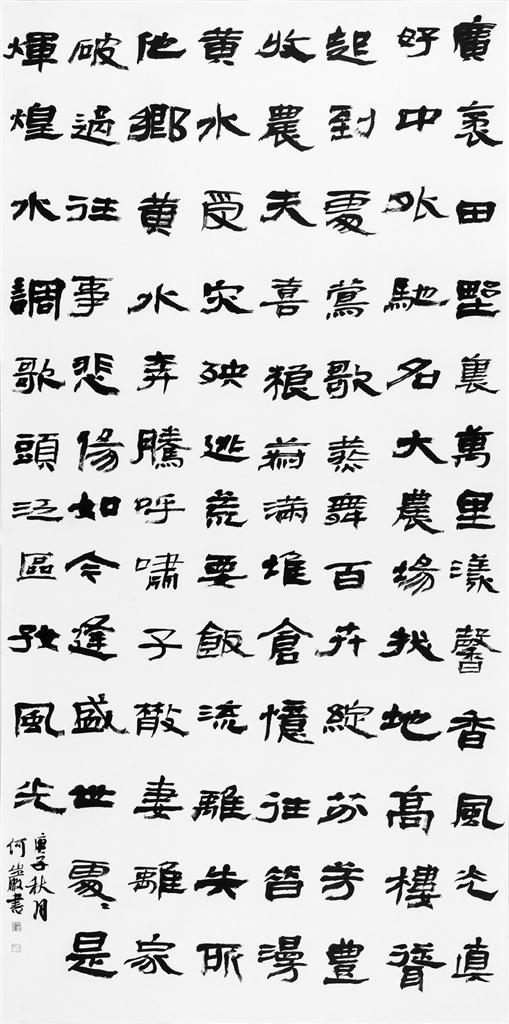 廣袤田野裏萬里漾馨香風光真
好中外馳名大農場拔地高樓聳
起到處鶯歌燕舞百卉綻芬芳豐
收農夫喜粮蔬滿堆倉憶往昔漫
黄水受災殃逃荒要飯流離失所
他鄉黄水奔騰呼嘯子散妻離家
破過往事悲傷如今逢盛世處〻是
輝煌水調歌頭泛區好風光
庚子秋月
何巖書